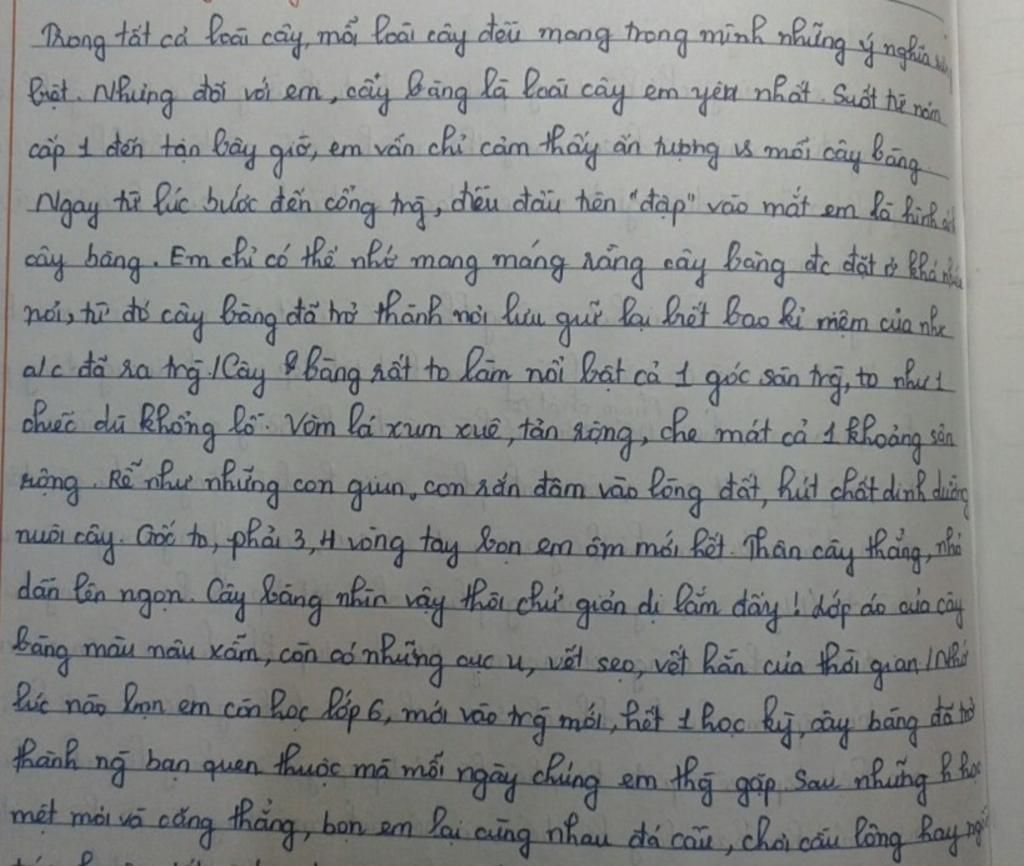 Trong tất cả loài cây, mổi loài cây đều mang trong mình những ý nghĩa
biệt. Nhưng đối với em, cây bàng là loài cây em yêu nhất. Suốt từ năm
cấp 1 đến tận bây giờ, em vẫn chỉ cảm thấy ấn tượng vs mỗi cây bàng.
Ngay từ lúc bước đến cổng trg, điều đầu tiên "đập" vào mắt em là hình
cây bàng. Em chỉ có thể nhớ mang máng rằng cây bàng đc đặt ở khá
nơi, từ đó cây bàng đã trở thành nơi lưu giữ lại hết bao kỉ niệm của
a/c đã ra trg./Cây bàng rất to làm nổi bật cả 1 góc sân trg, to như 1
chiếc dù khổng lồ. Vòm lá xum xuê, tán rộng, che mát cả 1 khoảng sân
rộng. Rễ như những con giun, con rắn đâm vào lòng đất, hút chất dinh dưỡng
nuôi cây. Gốc to, phải 3, 4 vòng tay bọn em ôm mới hết. Thân cây thẳng, nhỏ
dần lên ngọn. Cây bàng nhìn vậy thôi chứ giản dị lắm đấy! Lớp áo của cây
bàng màu nâu xẫm, còn có những cục u, vết sẹo, vết hằn của thời gian./Nhớ
lúc nào bọn em còn học lớp 6, mới vào trg mới, hết 1 học kỳ, cây bàng đã trở
thành ng bạn quen thuộc mà mỗi ngày chúng em thg gặp. Sau những h học
mệt mỏi và căng thẳng, bọn em lại cùng nhau đá cầu, chơi cầu lông hay